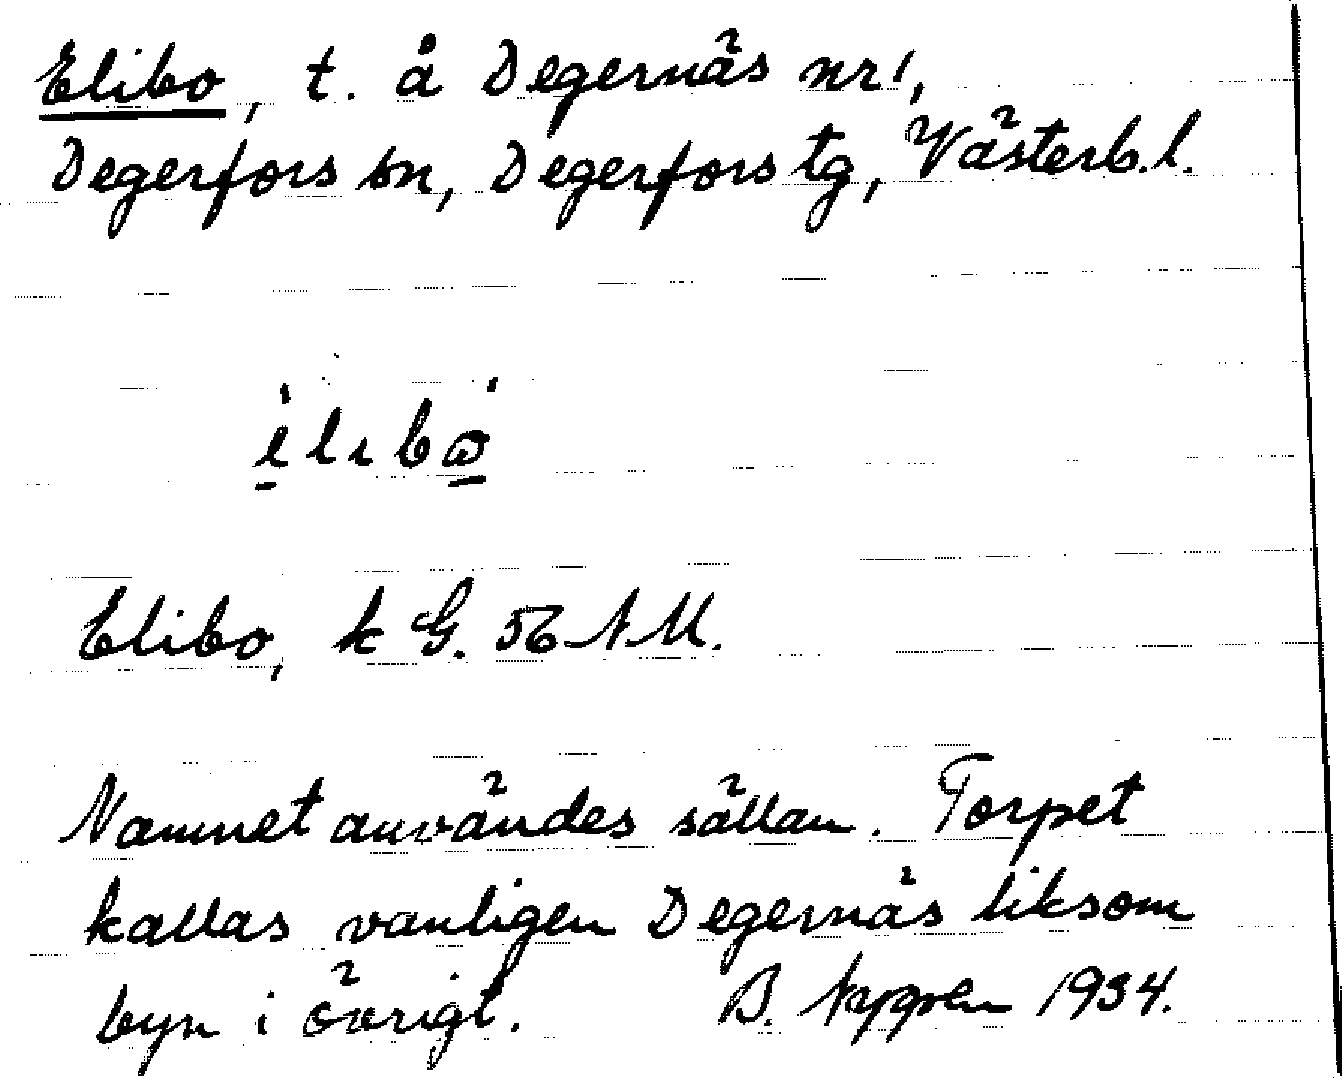 Elibo, t. å Degernäs nr 1,
Degerfors sn, Degerfors tg, Västerb. l.
Elibo, k G. 56 N M.
Namnet användes sällan. Torpet
kallas vanligen Degernäs liksom
byn i övrigt. B. 1934.